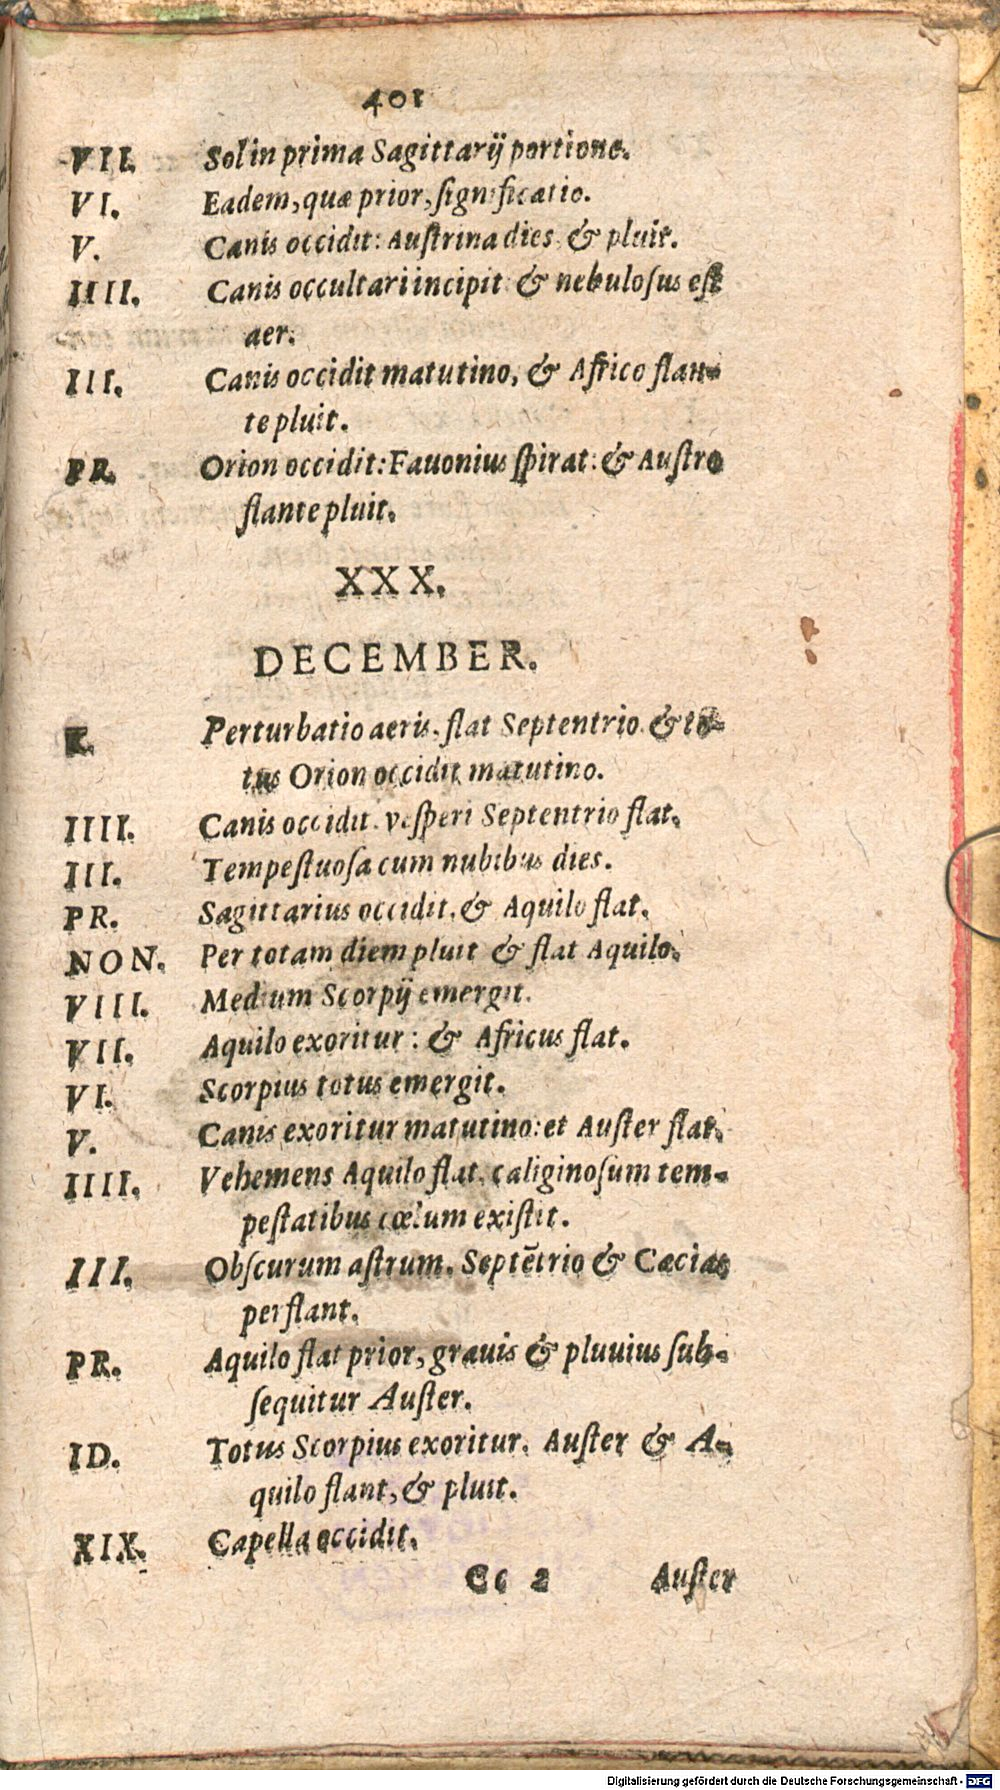 401
VII. Sol in prima Sagittarij portione.
VI. Eadem, quæ prior, significatio.
V. Canis occidit: Austrina dies & pluit.
IIII. Canis occultari incipit & nebulosus est
aer.
III. Canis occidit matutino, & Africo flan-
te pluit.
PR. Orion occidit: Fauonius spirat: & Austro
flante pluit.
XXX.
DECEMBER.
K. Perturbatio aeris. flat Septentrio. & to-
tus Orion occidit matutino.
IIII. Canis occidit. vesperi Septentrio flat.
III. Tempestuosa cum nubibus dies.
PR. Sagittarius occidit. & Aquilo flat.
NON. Per totam diem pluit & flat Aquilo.
VIII. Medium Scorpij emergit.
VII. Aquilo exoritur: & Africus flat.
VI. Scorpius totus emergit.
V. Canis exoritur matutino: et Auster flat.
IIII. Vehemens Aquilo flat. caliginosum tem-
pestatibus cœlum existit.
III. Obscurum astrum. Septētrio & Cæcias
perflant.
PR. Aquilo flat prior, grauis & pluuius sub-
sequitur Auster.
ID. Totus Scorpius exoritur. Auster & A-
quilo flant, & pluit.
XIX. Capella occidit.
Cc 2 Auster
Digitalisierung gefördert durch die Deutsche Forschungsgemeinschaft - DFG